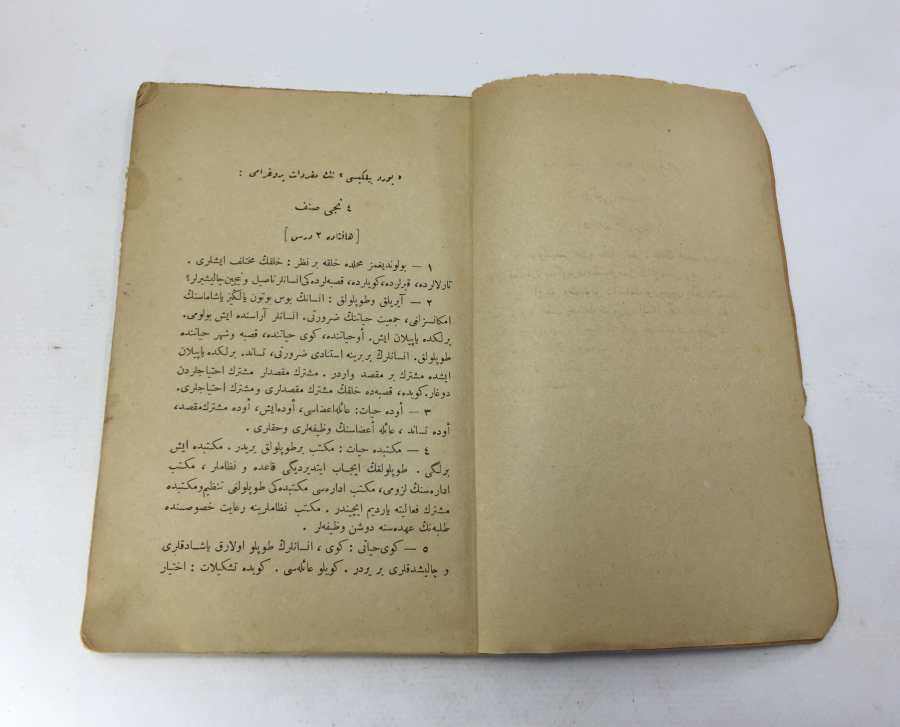 « یورد بیلكیسی » ننڭ مفردات پروغرامی :
٤ نجی صنف
[ هافتاده ٢ درس ]
١ — بولوندیغمز محلده خلقه بر نظر : خلقڭ مختلف ایشلری .
تارلالرده، قیرلرده، كویلرده، قصبه‌لرده‌كی انسانلر ناصیل و نیچین چالیشیرلر؟
٢ — آیریلق وطوپلولق : انسانڭ بوس بوتون یالڭز یاشاماسنڭ
امكانسزلغی، جمعیت حیاتنڭ ضرورتی. انسانلر آراسنده ایش بولومی.
برلكده یاپیلان ایش. أوحیاتنده، كوی حیاتنده، قصبه وشهر حیاتنده
طوپلولق. انسانلرڭ بربرینه استنادی ضرورتی، تساند. برلكده یاپیلان
ایشده مشترك بر مقصد واردر . مشترك مقصدلر مشترك احتیاجلردن
دوغار. كویده، قصبه‌ده خلقڭ مشترك مقصدلری ومشترك احتیاجلری.
٣ — أوده حیات: عائله‌اعضاسی، أوده‌ایش، أوده مشترك‌مقصد،
أوده تساند ، عائله أعضاسنڭ وظیفه‌لری وحقلری .
٤ — مكتبده حیات : مكتب برطوپلولق یریدر . مكتبده ایش
برلگی . طوپلولغڭ ایجاب ایتدیردیگی قاعده و نظاملر ، مكتب
اداره‌سنڭ لزومی، مكتب اداره‌سی مكتبده‌كی طوپلولغی تنظیم‌ومكتبده
مشترك فعالیته یاردیم ایچیندر . مكتب نظاملرینه رعایت خصوصنده
طلبه‌نڭ عهده‌سنه دوشن وظیفه‌لر .
٥ — كوی‌حیاتی : كوی ، انسانلرڭ طوپلو اولارق یاشادقلری
و چالیشدقلری بر یردر . كویلو عائله‌سی . كویده تشكیلات : اختیار